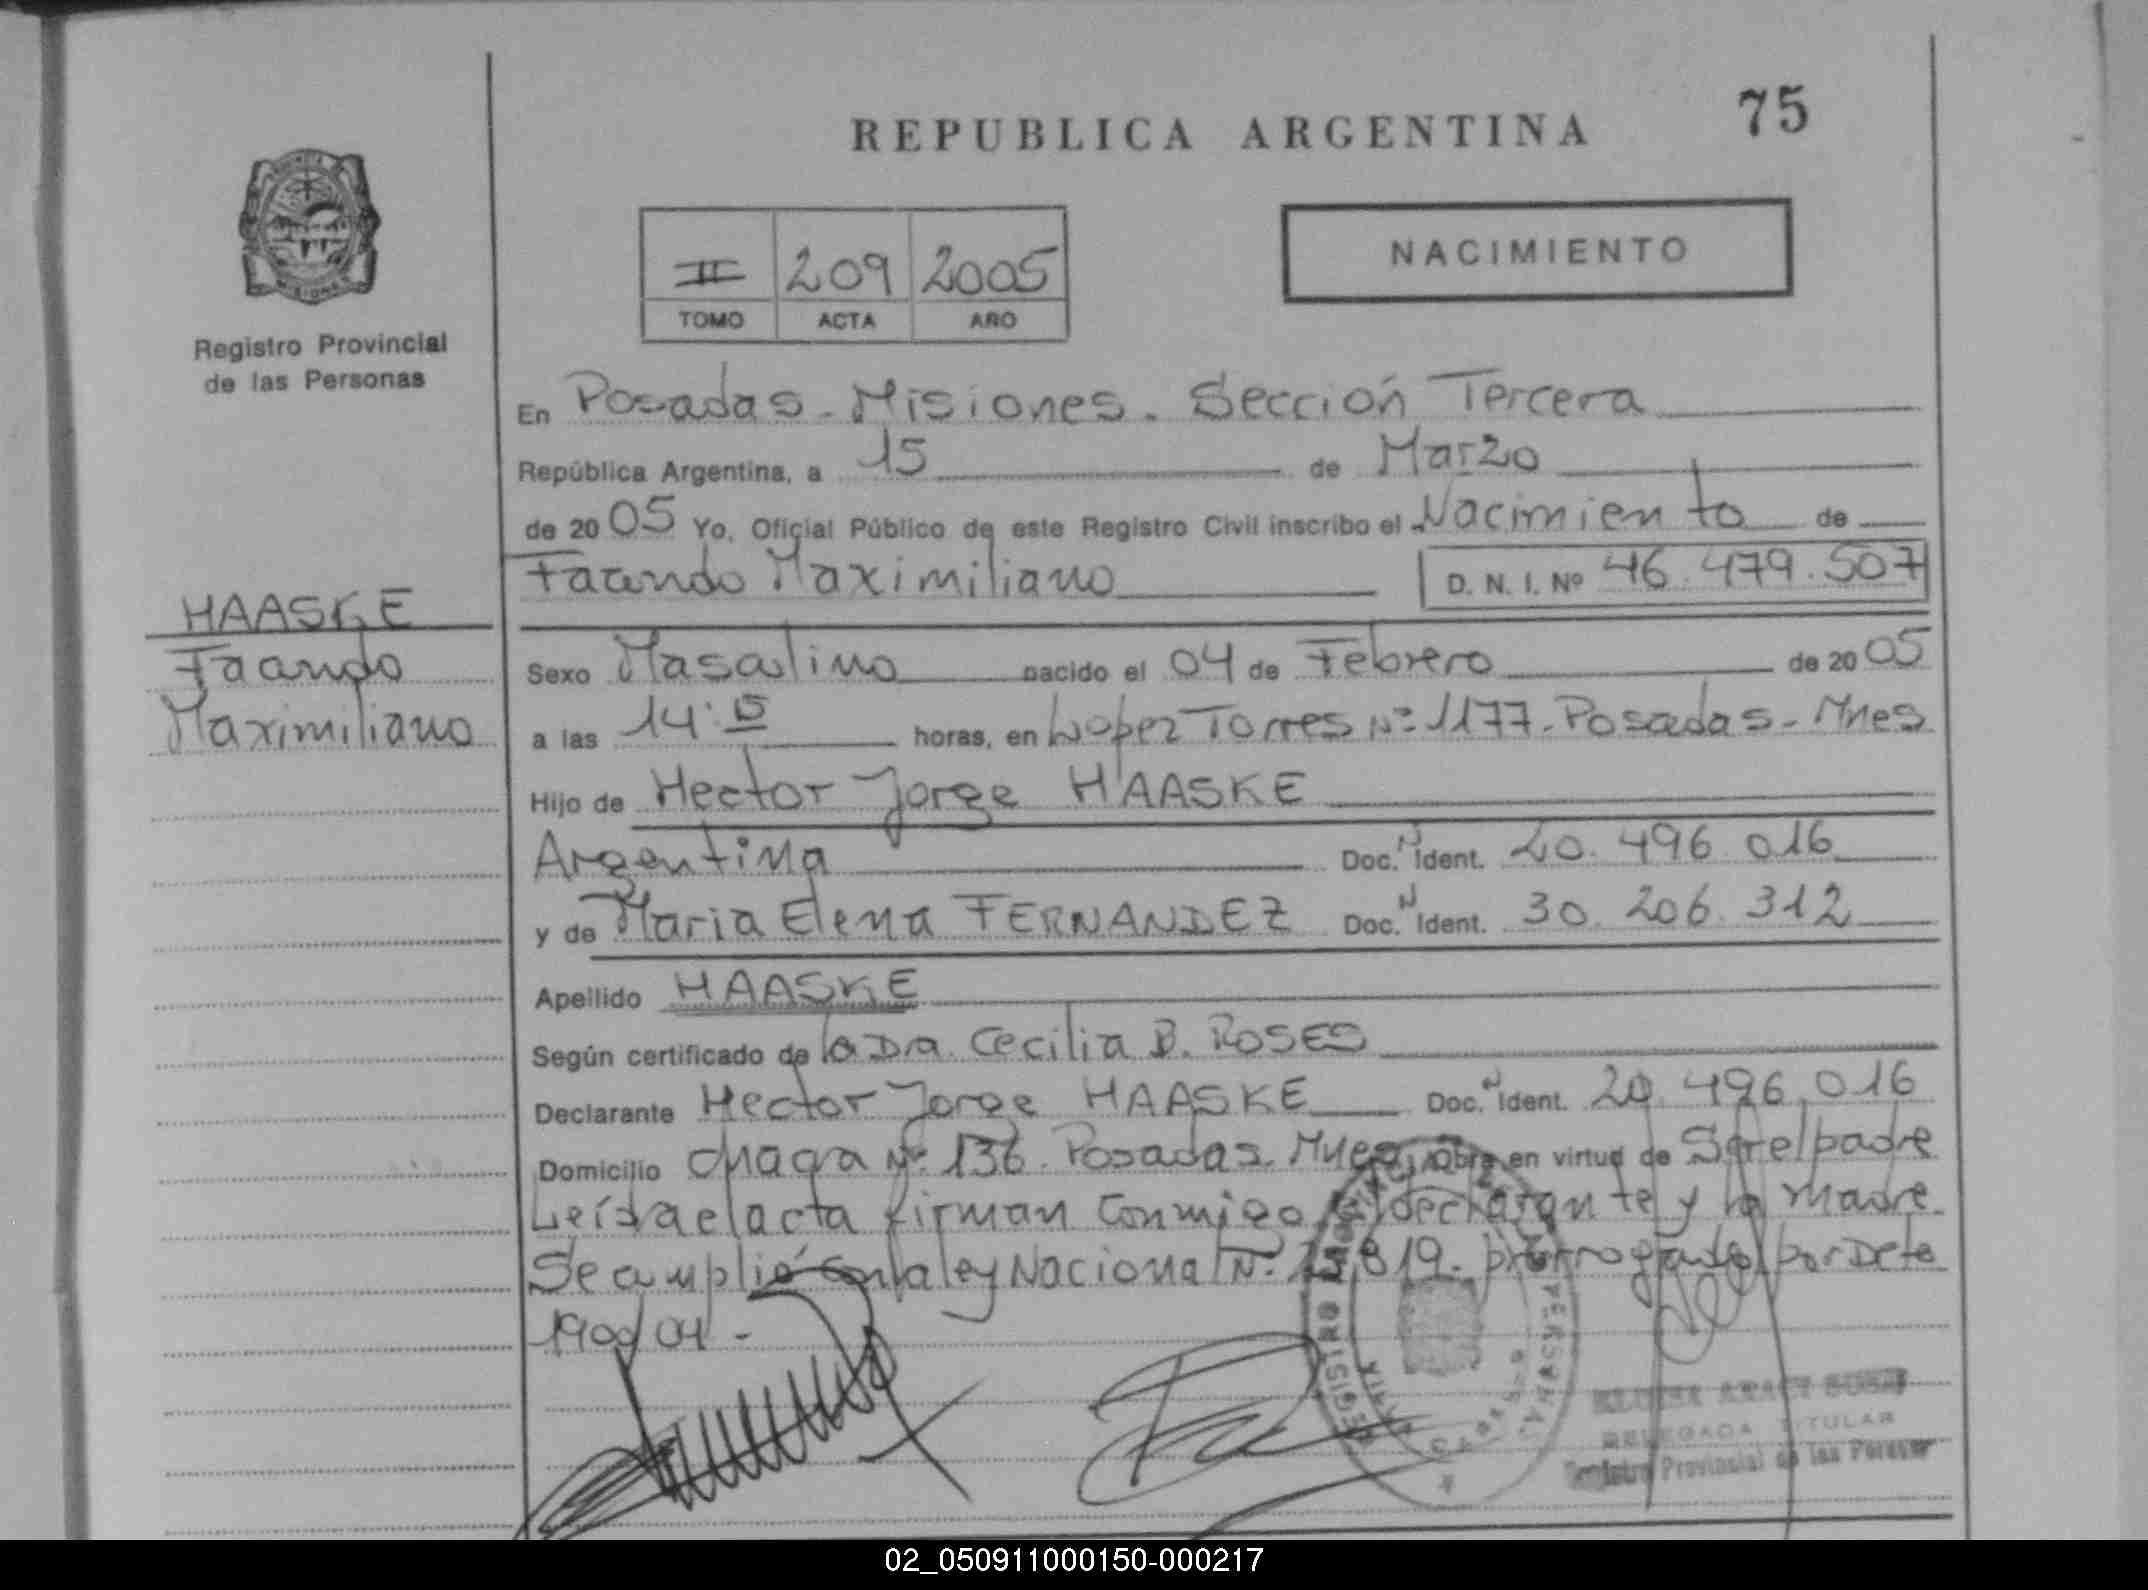 REPUBLICA ARGENTINA
75
II 209 2005
TOMO ACTA AÑO
NACIMIENTO
Registro Provincial
de las Personas
En Posadas - Misiones - Sección Tercera
República Argentina, a 15 de Marzo
de 2005 Yo, Oficial Público de este Registro Civil inscribo el Nacimiento de
Facundo Maximiliano D. N. I. Nº 46.479.507
HAASKE
Facundo
Maximiliano
Sexo Masculino nacido el 04 de Febrero de 2005
a las 14:15 horas, en Lopez Torres Nº 1177 - Posadas - Mnes
Hijo de Hector Jorge HAASKE
Argentina Doc. Ident. 20.496.016
y de Maria Elena FERNANDEZ Doc. Ident. 30.206.312
Apellido HAASKE
Según certificado de la Dra. Cecilia B. ROSES
Declarante Hector Jorge HAASKE Doc. Ident. 20.496.016
Domicilio Chaga Nº 136. Posadas. Mnes Obra en virtud de Ser el padre
Leída el acta firman Conmigo el declarante y la madre
Se cumplió con la ley Nacional Nº 25.819. prorrogado por Dcto
1900/04 -
DELEGADA TITULAR
Registro Provincial de las Personas
02_050911000150-000217